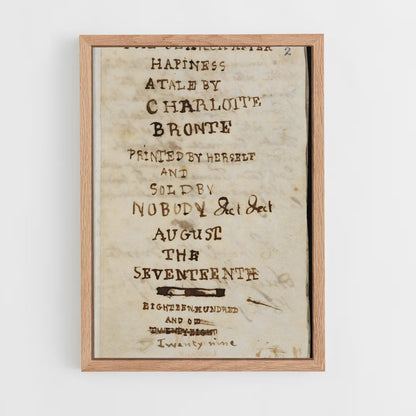 AFTER
2
HAPINESS
A TALE BY
CHARLOTTE
BRONTE
PRINTED BY HERSELF
AND
SOLD BY
NOBODY &ct &ct
AUGUST
THE
SEVENTEENTH
EIGHTEEN HUNDRED
AND
TWENTY EIGHT
Twenty nine